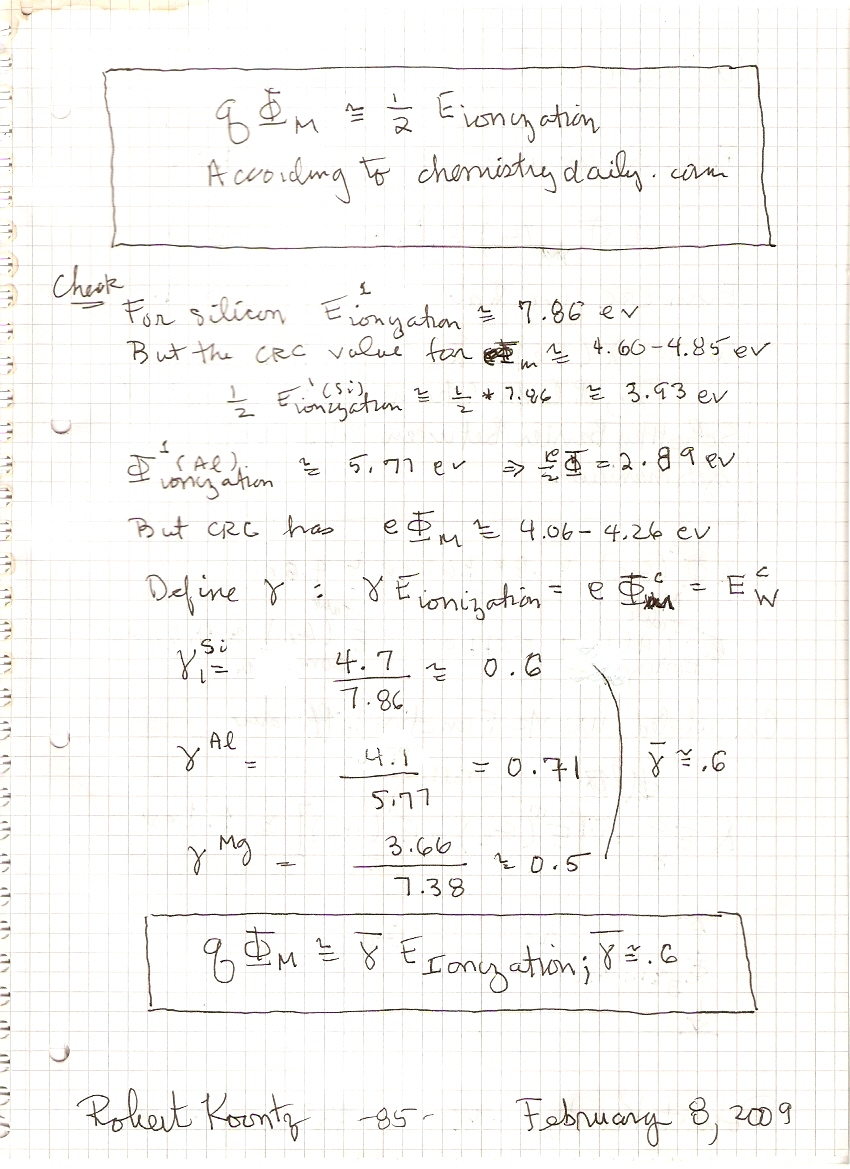 q Φ_M ≅ 1/2 E_ionization
According to chemistrydaily.com
Check
For silicon E^1_ionization ≅ 7.86 ev
But the CRC value for eΦ_m ≅ 4.60-4.85 ev
1/2 E^1(Si)_ionization ≅ 1/2 * 7.86 ≅ 3.93 ev
Φ^1(Al)_ionization ≅ 5.77 ev ⇒ e/2 Φ = 2.89 ev
But CRC has eΦ_M ≅ 4.06-4.26 ev
Define γ : γ E_ionization = e Φ^c_m = E^c_W
γ_1^Si = 4.7/7.86 ≅ 0.6
γ^Al = 4.1/5.77 = 0.71 γ̄ ≅ .6
γ^Mg = 3.66/7.38 ≅ 0.5
q Φ_M ≅ γ̄ E_Ionization; γ̄ ≅ .6
Robert Koontz -85- February 8, 2009